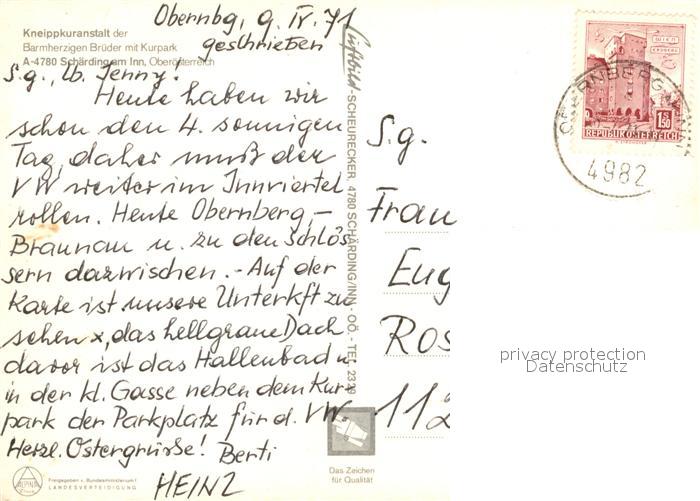 Kneippkuranstalt der
Barmherzigen Brüder mit Kurpark
A-4780 Schärding am Inn, Oberösterreich
Obernbg, 9. IV. 71
geschrieben
S.g., lb. Jenny!
Heute haben wir
schon den 4. sonnigen
Tag, daher muß der
VW weiter im Innviertel
rollen. Heute Obernberg, –
Braunau u. zu den Schlös-
sern dazwischen. – Auf der
Karte ist unsere Unterkft zu
sehen x, das hellgraue Dach
davor ist das Hallenbad u.
in der kl. Gasse neben dem Kur-
park der Parkplatz für d. VW
Herzl. Ostergrüsse! Berti
HEINZ
Freigegeben v. Bundesministerium f.
LANDESVERTEIDIGUNG
ALPINA
Luftbild SCHEURECKER, 4780 SCHÄRDING/INN - OÖ. - TEL. 2319
Das Zeichen
für Qualität
S.g.
Frau
Eug
Ros
112
WIEN
ERDBERG
1.50
REPUBLIK ÖSTERREICH
OBERNBERG
4982
privacy protection
Datenschutz